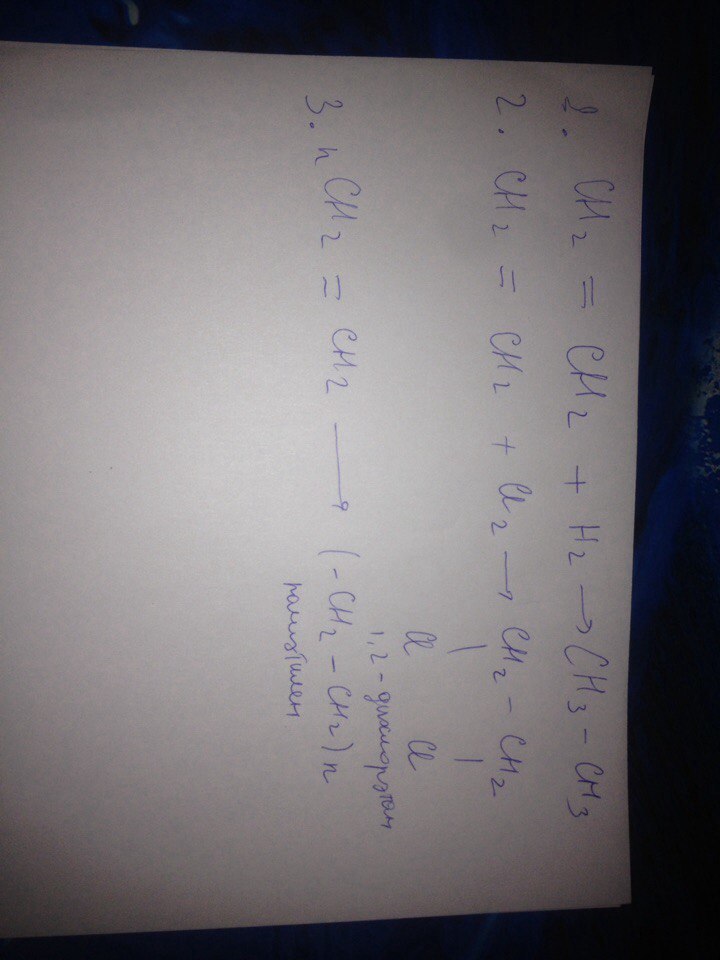 1. CH2 = CH2 + H2 → CH3 - CH3
2. CH2 = CH2 + Cl2 → CH2 - CH2
| |
Cl Cl
1,2-дихлорэтан
3. nCH2 = CH2 → (-CH2 - CH2)n
полиэтилен